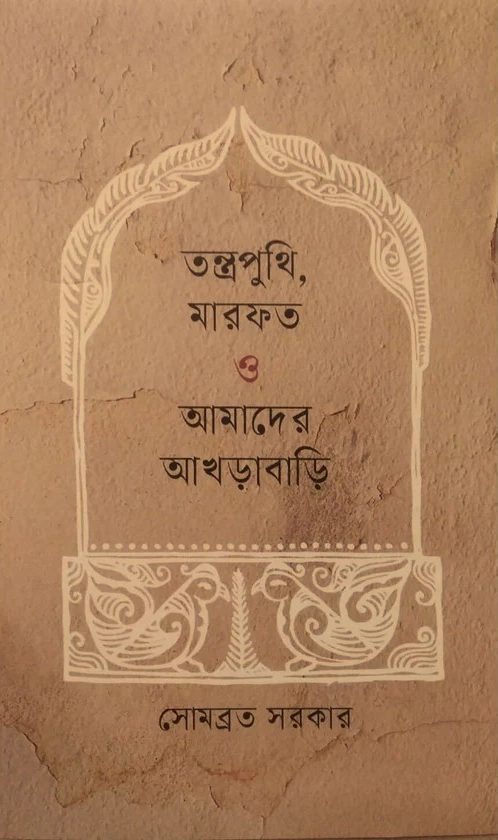 তন্ত্রপুথি,
মারফত
ও
আমাদের
আখড়াবাড়ি
সোমব্রত সরকার